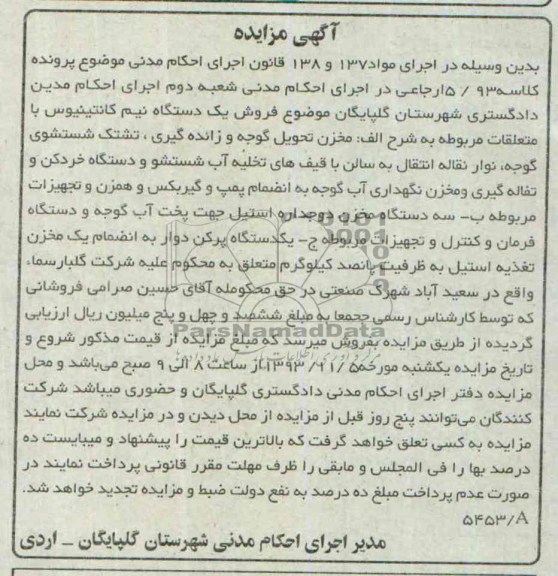 آگهی مزایده
بدین وسیله در اجرای مواد۱۳۷ و ۱۳۸ قانون اجرای احکام مدنی موضوع پرونده
کلاسه۹۳ / ۵ارجاعی در اجرای احکام مدنی شعبه دوم اجرای احکام مدین
دادگستری شهرستان گلپایگان موضوع فروش یک دستگاه نیم کانتینیوس با
متعلقات مربوطه به شرح الف: مخزن تحویل گوجه و زائده گیری ، تشتک شستشوی
گوجه، نوار نقاله انتقال به سالن با قیف های تخلیه آب شستشو و دستگاه خردکن و
تفاله گیری ومخزن نگهداری آب گوجه به انضمام پمپ و گیربکس و همزن و تجهیزات
مربوطه ب- سه دستگاه مخزن دوجداره استیل جهت پخت آب گوجه و دستگاه
فرمان و کنترل و تجهیزات مربوطه ج- یکدستگاه پرکن دوار به انضمام یک مخزن
تغذیه استیل به ظرفیت پانصد کیلوگرم متعلق به محکوم علیه شرکت گلبارسما،
واقع در سعید آباد شهرک صنعتی در حق محکومله آقای حسین صرامی فروشانی
که توسط کارشناس رسمی جمعا به مبلغ ششصد و چهل و پنج میلیون ریال ارزیابی
گردیده از طریق مزایده بفروش میرسد که مبلغ مزایده از قیمت مذکور شروع و
تاریخ مزایده یکشنبه مورخه۵ /۱۱ /۱۳۹۳از ساعت ۸ الی ۹ صبح می‌باشد و محل
مزایده دفتر اجرای احکام مدنی دادگستری گلپایگان و حضوری میباشد شرکت
کنندگان می‌توانند پنج روز قبل از مزایده از محل دیدن و در مزایده شرکت نمایند
مزایده به کسی تعلق خواهد گرفت که بالاترین قیمت را پیشنهاد و میبایست ده
درصد بها را فی المجلس و مابقی را ظرف مهلت مقرر قانونی پرداخت نمایند در
صورت عدم پرداخت مبلغ ده درصد به نفع دولت ضبط و مزایده تجدید خواهد شد.
۵۴۵۳/A
مدیر اجرای احکام مدنی شهرستان گلپایگان – اردی
ParsNamadData